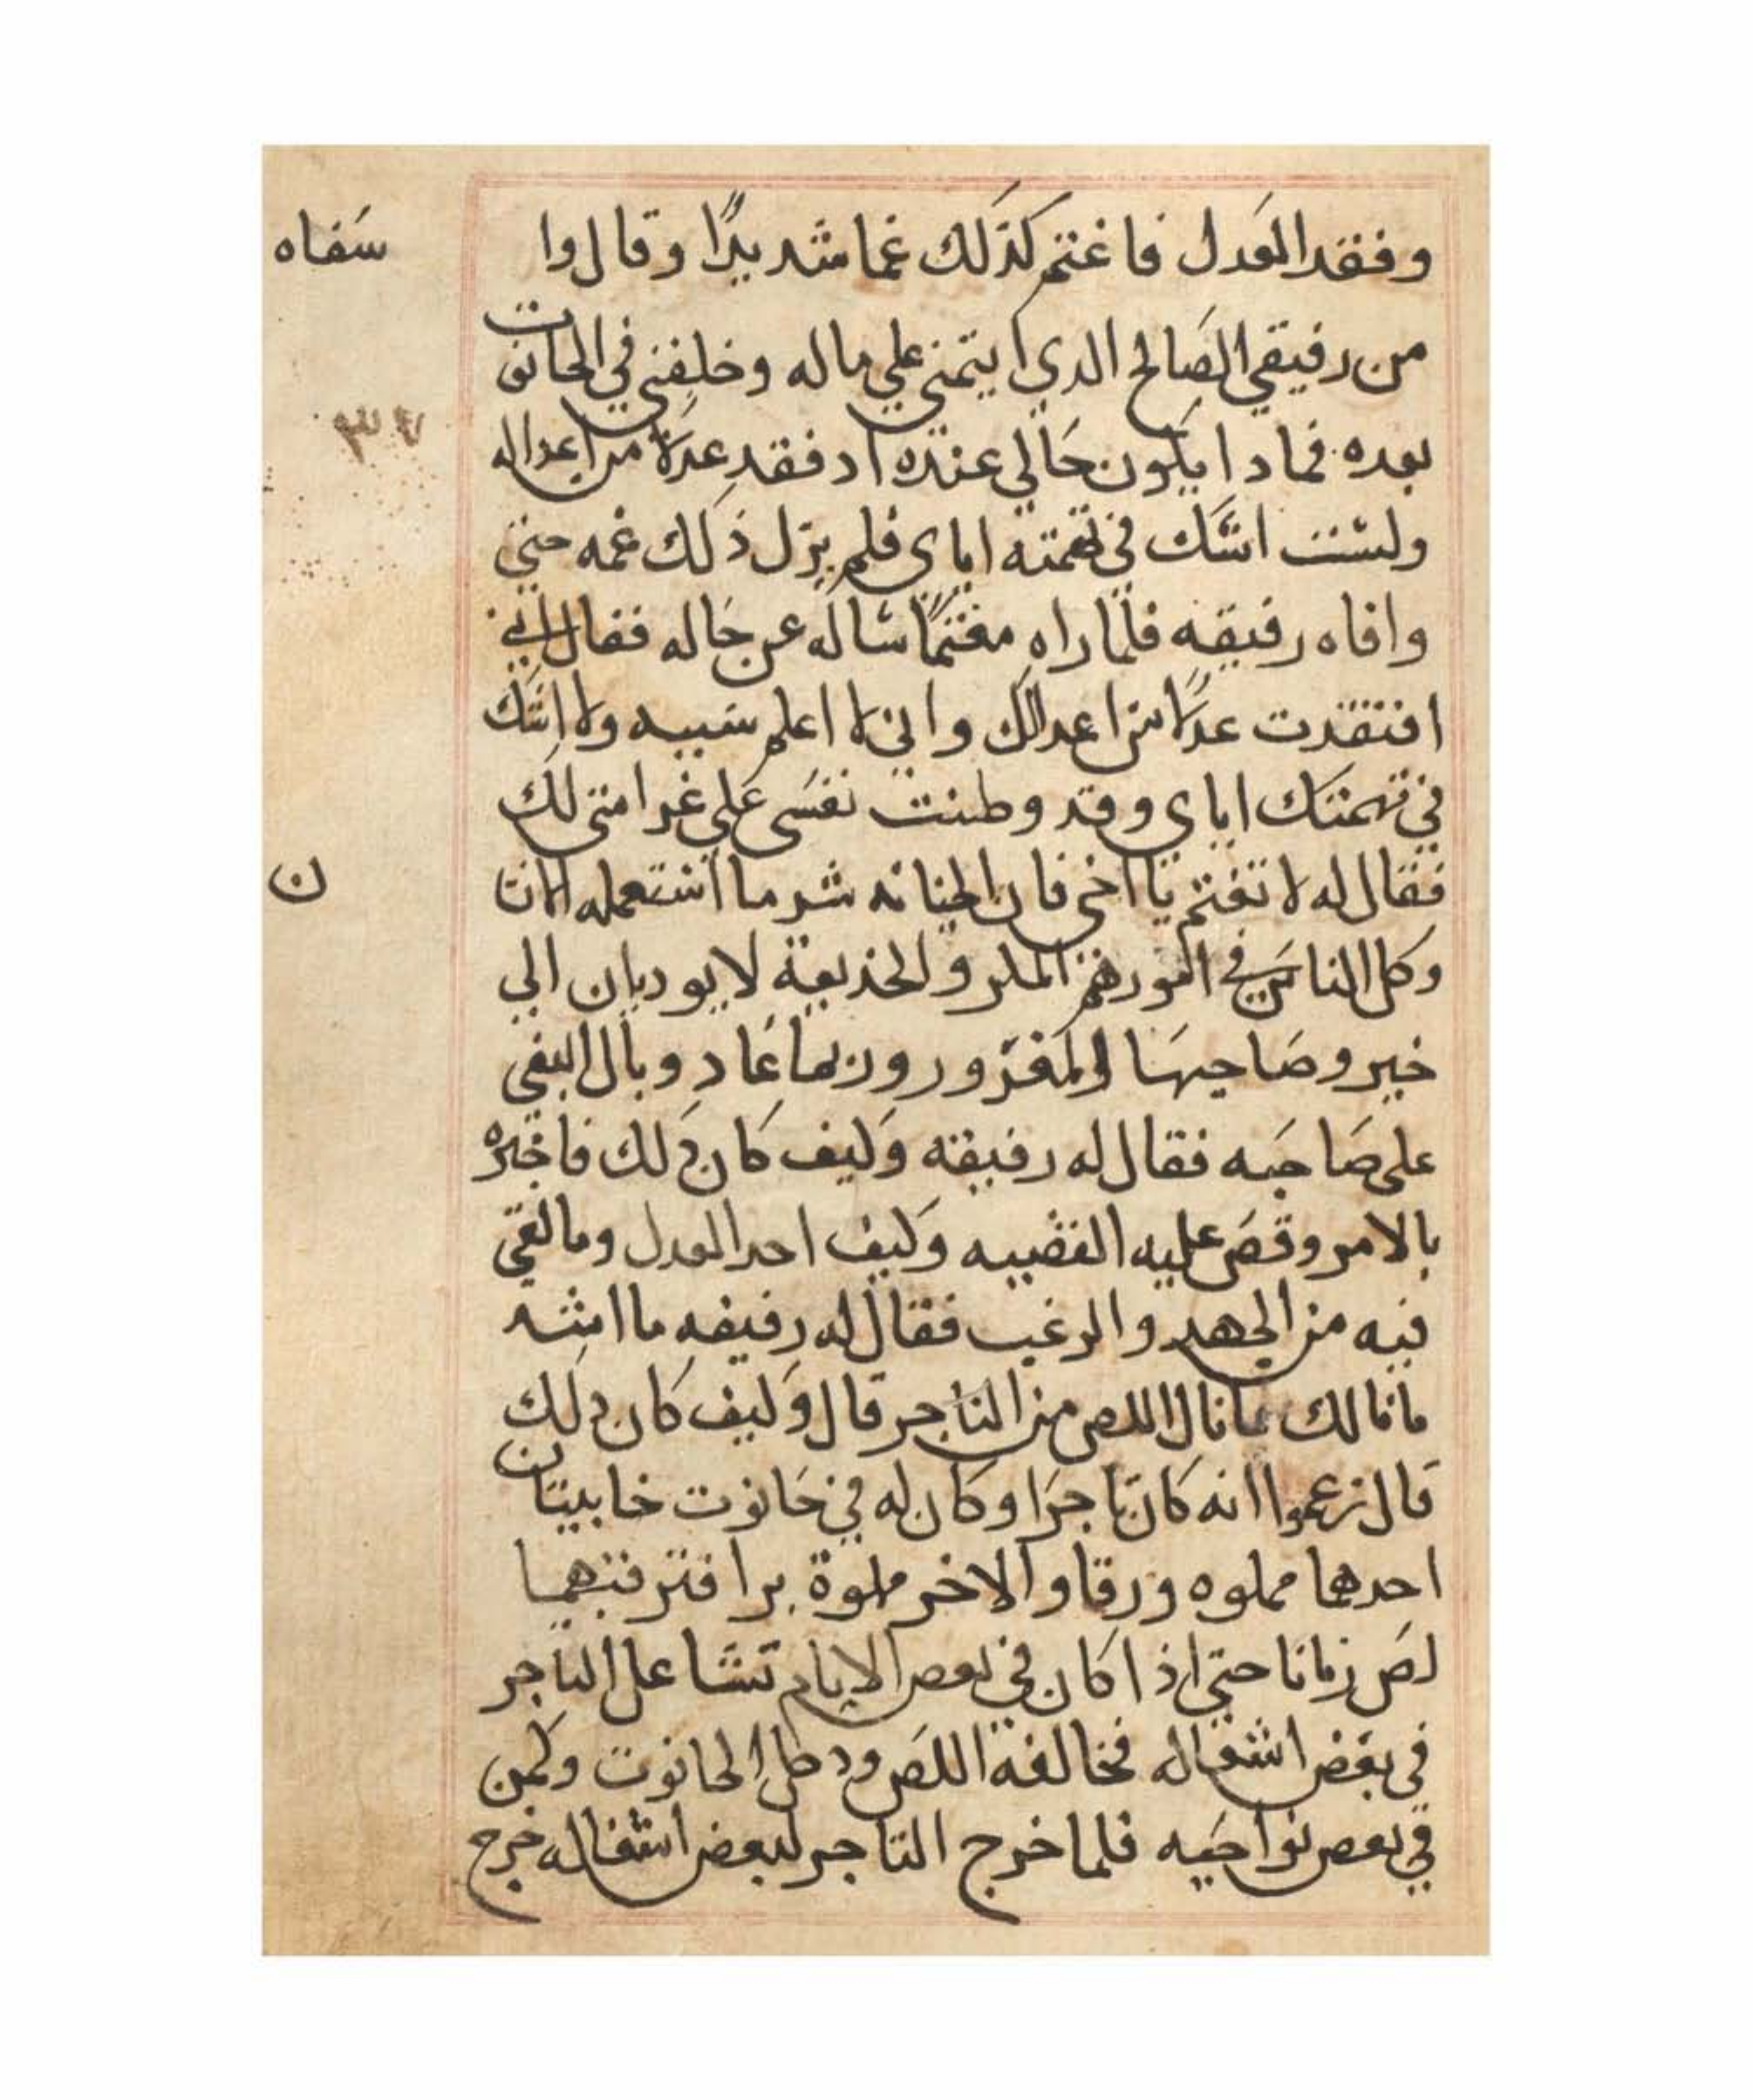 وفقد العدل فاغتم كذلك غما شديدًا وقال وا سفاه
من رفيقي الصالح الدي ايتمني علي ماله وخلفني في الحانوت
٣٧
بعده فمادا يكون حالي عنده اد فقد عدلا من اعداله
ولست اشك في تهمته اياي فلم يزل ذلك غمه حتي
وافاه رفيقه فلما راه مغتمًا ساله عن حاله فقال اني
افتقدت عدلًا من اعدالك واني لا اعلم سببه ولا اشك
في تهمتك اياي وقد وطنت نفسي علي غرامتي لك
فقال له لا تغتم يا اخي فان الخيانه شر ما استعمله الانسان
وكل الناس في المكر والخديعة لا يوديان الي
خير وصاحبها المغرور وربما عاد وبال البغي
علي صاحبه فقال له رفيقه وكيف كان دلك فاخبره
بالامر وقص عليه القضيه وكيف احد العدل وما لقي
فيه من الجهد والرغب فقال له رفيقه ما اشبه
ما نالك بما نال اللص من التاجر قال وكيف كان دلك
قال زعموا انه كان تاجرا وكان له في حانوت خابيتان
احدهما مملوه ورقا والاخر مملوة برا فترقبهما
لص زمانا حتي اذا كان في بعض الايام تشاعل التاجر
في بعض اشغاله فخالفه اللص ودخل الحانوت وكمن
في بعض نواحيه فلما خرج التاجر لبعض اشغاله خرج